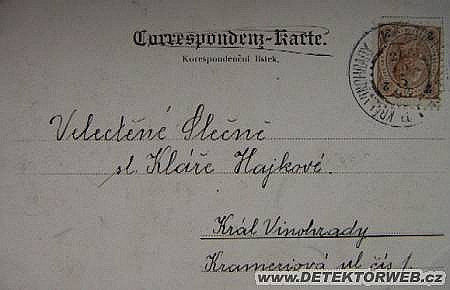 Correspondenz-Karte.
Korespondenční lístek.
Velectěné Slečně
sl. Kláře Hajkové
Král Vinohrady
Krameriová ul čís 1.
© WWW.DETEKTORWEB.CZ